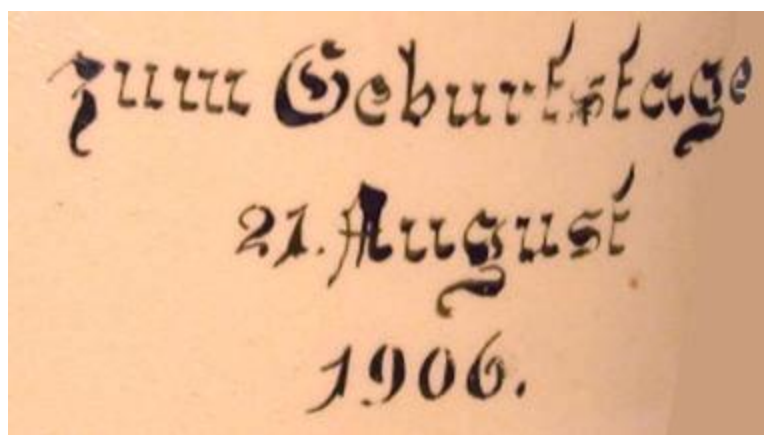 zum Geburtstage
21. August
1906.